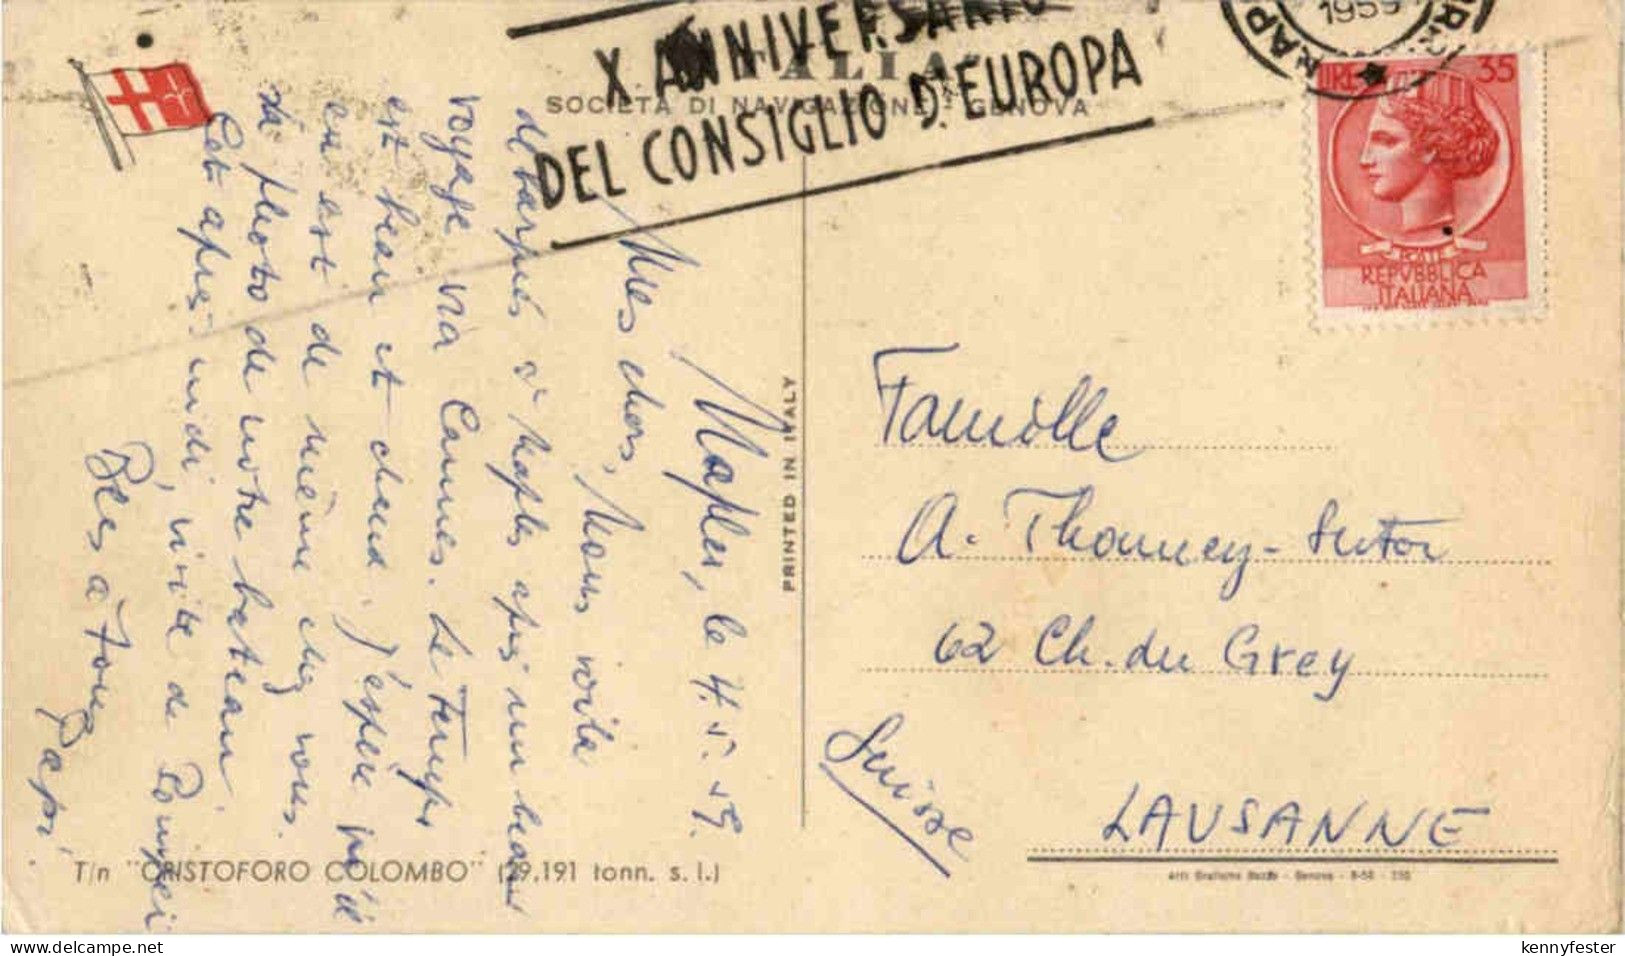 X ANNIVERSARIO
DEL CONSIGLIO D'EUROPA
1959
ITALIA
SOCIETÀ DI NAVIGAZIONE - GENOVA
LIRE 35
REPVBBLICA
ITALIANA
Naples, le 4.5.59.
Mes chers, Nous voila
débarqués à Naples après un beau
voyage via Cannes. Le Temps
est beau et chaud, j'espère qu'il
en est de même chez vous.
La photo de notre bateau.
Cet après-midi, visite de Pompei
Bes à Tous
Papi.
PRINTED IN ITALY
Famille
A. Thonney-Sutor
62 Ch. du Grey
Suisse
LAUSANNE
T/n "CRISTOFORO COLOMBO" (29.191 tonn. s. l.)
kennyfester